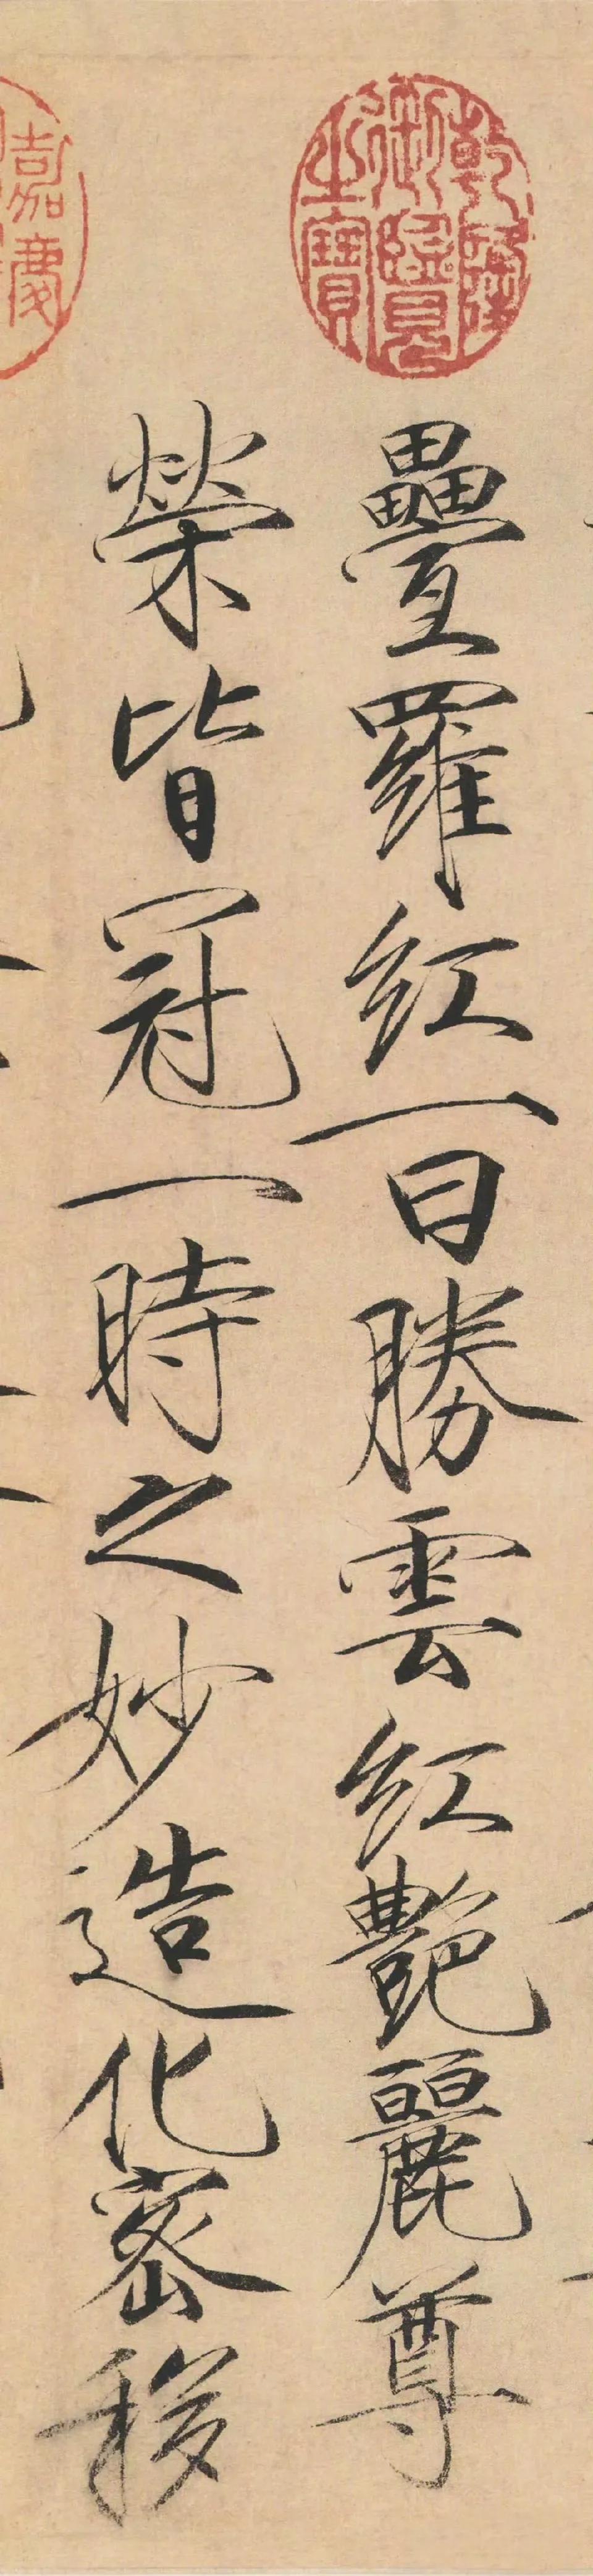 乾隆御覽之寶
疊羅紅一曰勝雲紅艷麗尊
榮皆冠一時之妙造化密移
嘉慶